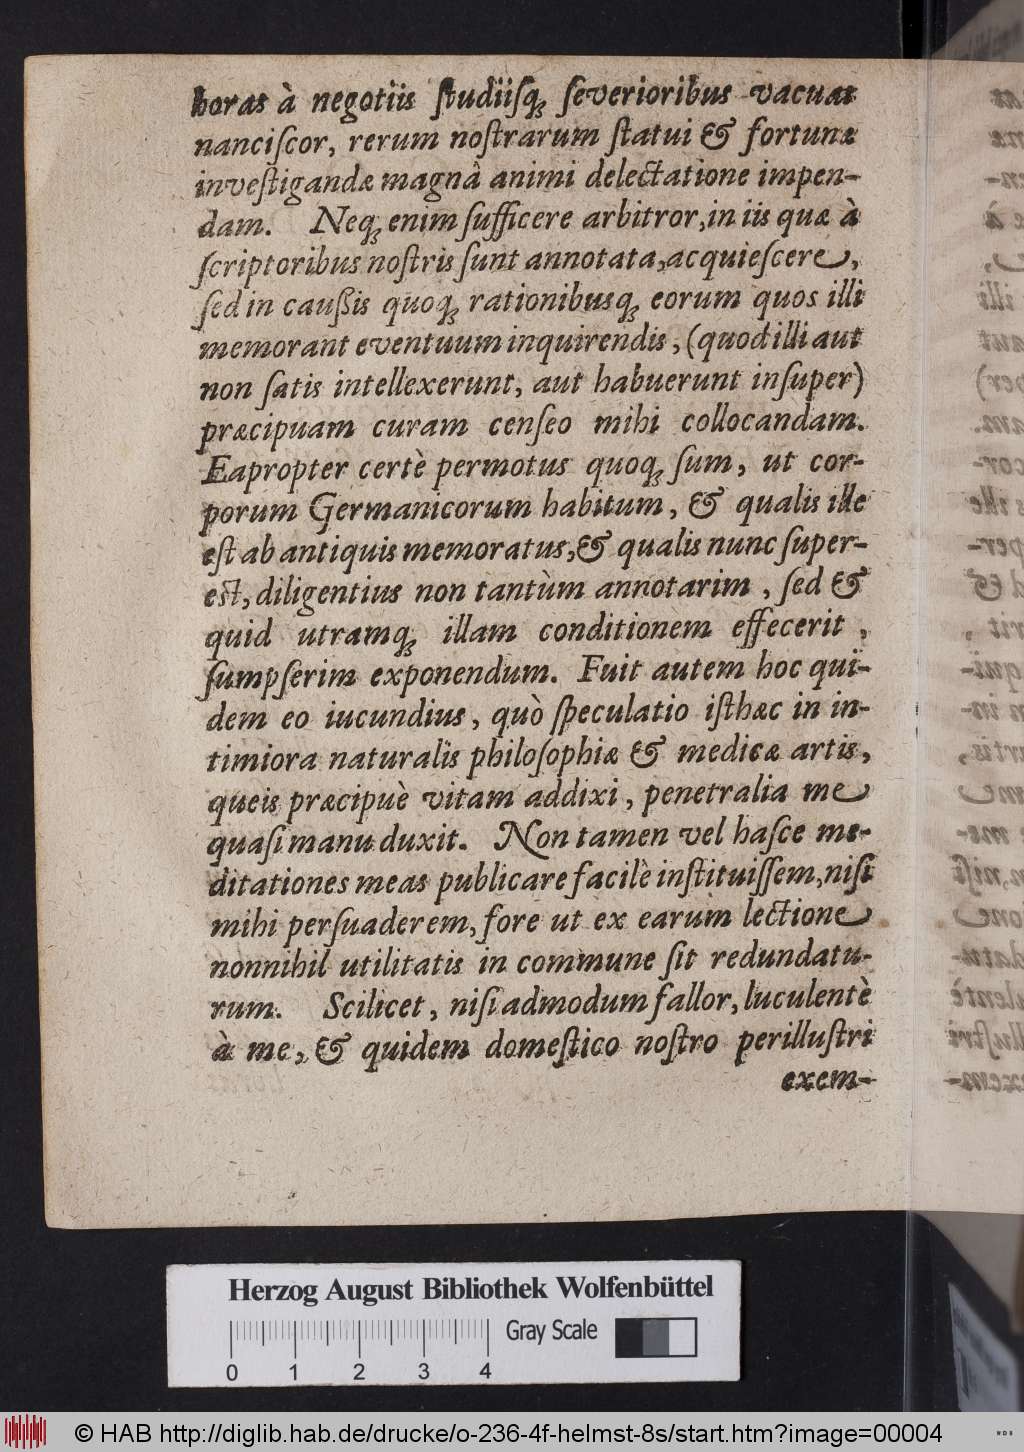 horas à negotiis ſtudiiſq́ꝫ ſeverioribus vacuas
nanciſcor, rerum noſtrarum ſtatui & fortunæ
inveſtigandæ magnâ animi delectatione impen-
dam. Neqꝫ enim ſufficere arbitror, in iis quæ à
ſcriptoribus noſtris ſunt annotata, acquieſcere,
ſed in cauſſis quoqꝫ rationibusqꝫ eorum quos illi
memorant eventuum inquirendis, (quod illi aut
non ſatis intellexerunt, aut habuerunt inſuper)
præcipuam curam cenſeo mihi collocandam.
Eapropter certè permotus quoqꝫ ſum, ut cor-
porum Germanicorum habitum, & qualis ille
eſt ab antiquis memoratus, & qualis nunc ſuper-
eſt, diligentius non tantùm annotarim, ſed &
quid utramqꝫ illam conditionem effecerit,
ſumpſerim exponendum. Fuit autem hoc qui-
dem eo iucundius, quò ſpeculatio iſthæc in in-
timiora naturalis philoſophiæ & medicæ artis,
queis præcipuè vitam addixi, penetralia me
quaſi manu duxit. Non tamen vel haſce me-
ditationes meas publicare facilè inſtituiſſem, niſi
mihi perſuaderem, fore ut ex earum lectione
nonnihil utilitatis in commune ſit redundatu-
rum. Scilicet, niſi admodum fallor, luculentè
à me, & quidem domeſtico noſtro perilluſtri
exem-
Herzog August Bibliothek Wolfenbüttel
Gray Scale
0 1 2 3 4
© HAB http://diglib.hab.de/drucke/o-236-4f-helmst-8s/start.htm?image=00004